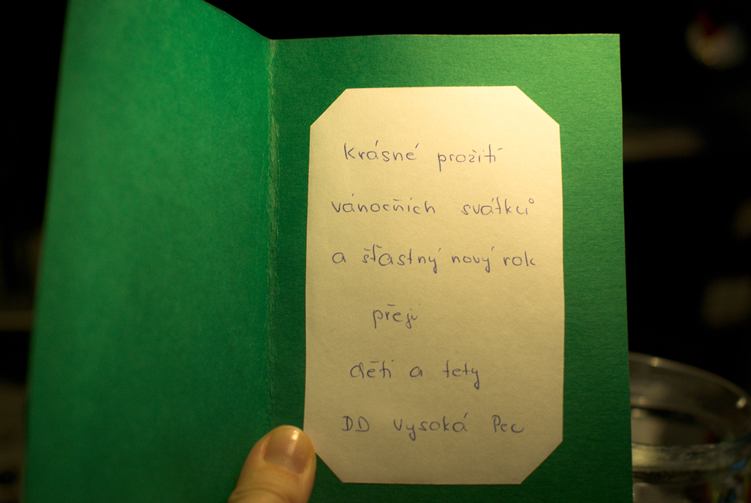 Krásné prožití
vánočních svátků
a šťastný nový rok
přejí
děti a tety
DD Vysoká Pec